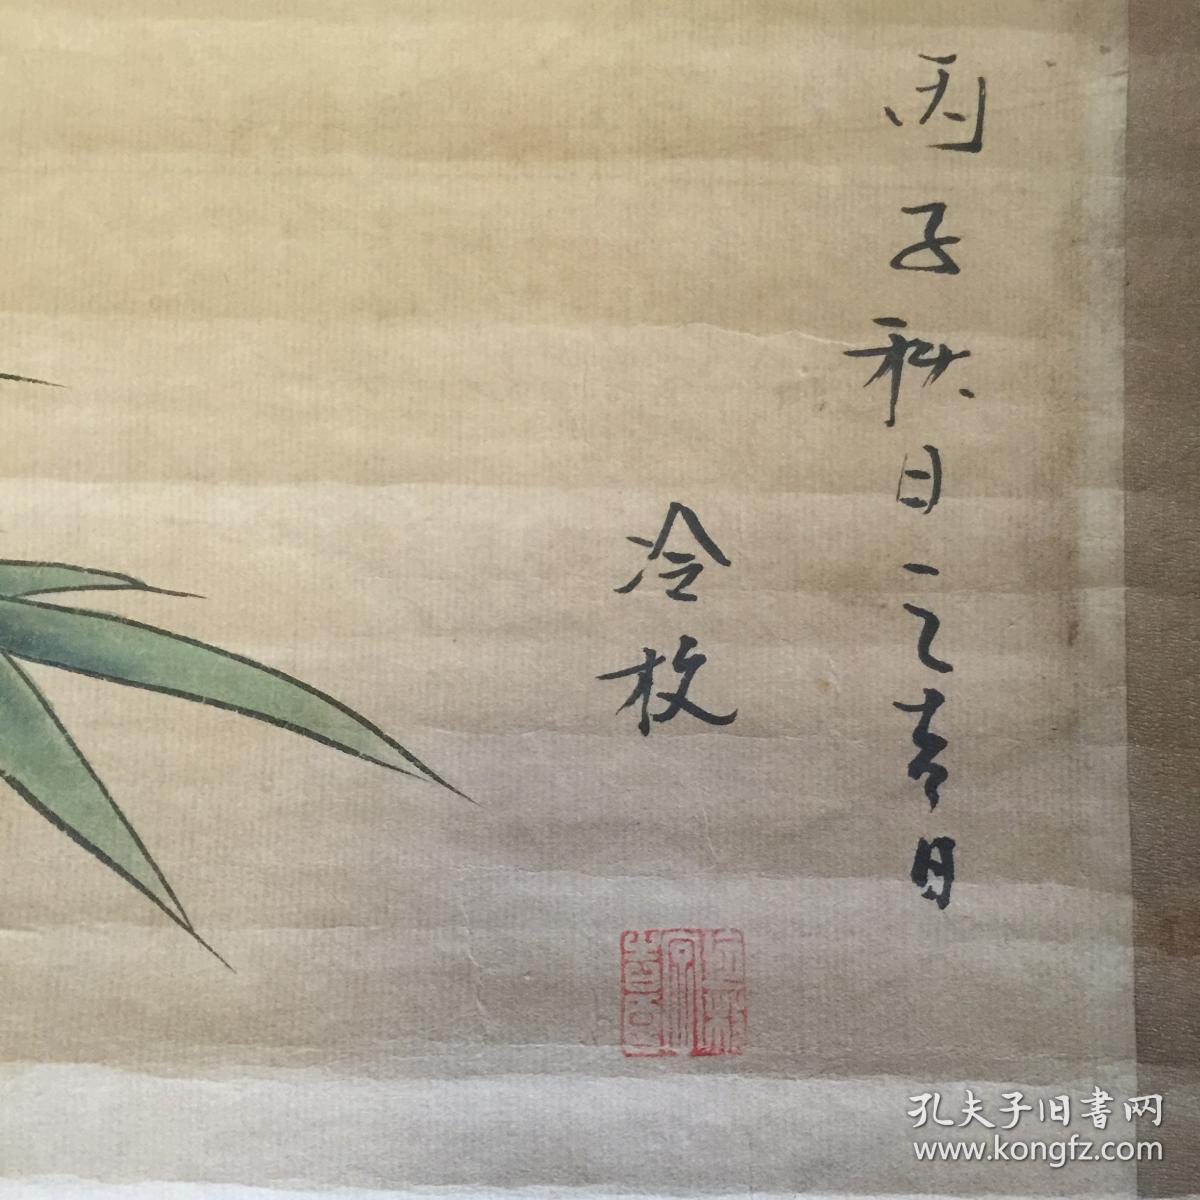 丙子秋日之吉日
冷枚
孔夫子旧书网
www.kongfz.com